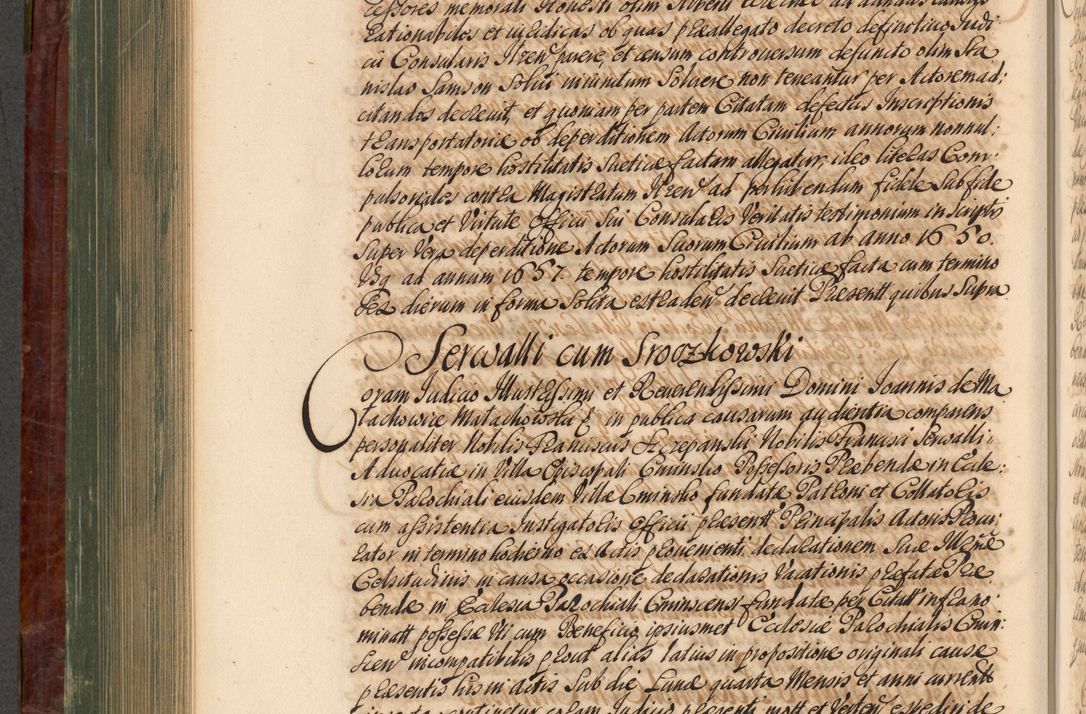 cessores memorati Honesti olim Alberti
rationabiles et iuridicas ob quas praeallegato decreto definitivo Judi:
cii Consularis Ilzen: parere, et censum controversum defuncto olim Sta
nislao Samson Solui vivundum Soluere non teneantur per Actorem ad:
citandos decrevit, et quoniam per partem Citatam defectus Inscriptionis
transportatoriae ob deperditionem Actorum Civilium annorum nonnul:
lorum tempore hostilitatis Sueticae factam allegatur, ideo literas Com:
pulsoriales contra Magistratum Ilzen: ad perhibendum fidele Sub fide
publica et Virtute Officii Sui Consularis Veritatis testimonium in Scriptis
Super Vera deperditione Actorum Suorum Civilium ab Anno 1650.
Usq ad annum 1657 tempore hostilitatis Sueticae facta cum termino
dierum in forma Solita extraden: decrevit Praesentt quibus Supra
Serwalli cum Sroczkowski
Coram Judicio Illustrissimi et Reverendissimi Domini Joannis de Ma
łachowice Małachowski & in publica causarum audientia comparens
personaliter Nobilis Franciscus Szczepanski Nobilis Francisci Serwalli:
Advocatiae in Villa Episcopali Cminsko Possessoris Praebendae in Eccle:
sia Parochiali eiusdem Villae Cminsko fundatae Patroni et Collatoris
cum assistentia Instigatoris Officii praesentt Principalis Actoris Procu:
rator in termino hodierno ex Actis provenienti, declarationem Suae
Celsitudinis in causa occasione declarationis Vacationis praefatae Prae
bendae in Ecclesia Parochiali Cminscensi fundatae per Citatt infra no:
minatt possessae Uti cum Beneficio ipsiusmet Ecclesiae Parochialis Cmin
scen: incompatibilis prout alias latius in propositione originali causae
praesentis his in Actis Sub die Lunae quarta Mensis et anni currentt
continetur coram Judicio praesenti